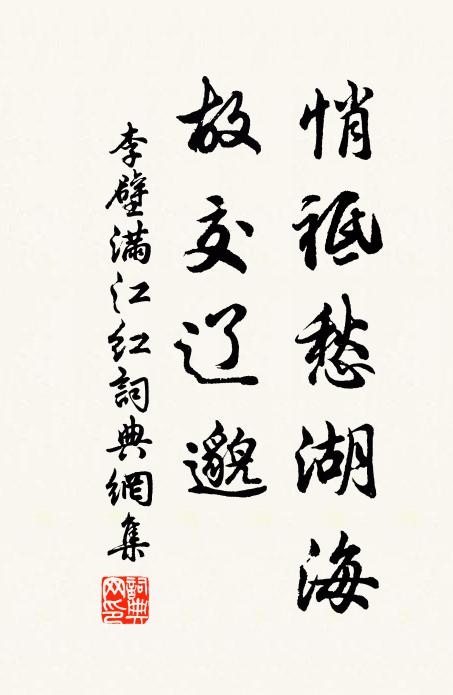 悄祗愁湖海
故交辽邈
李壁满江红詞典網集
詞典网印